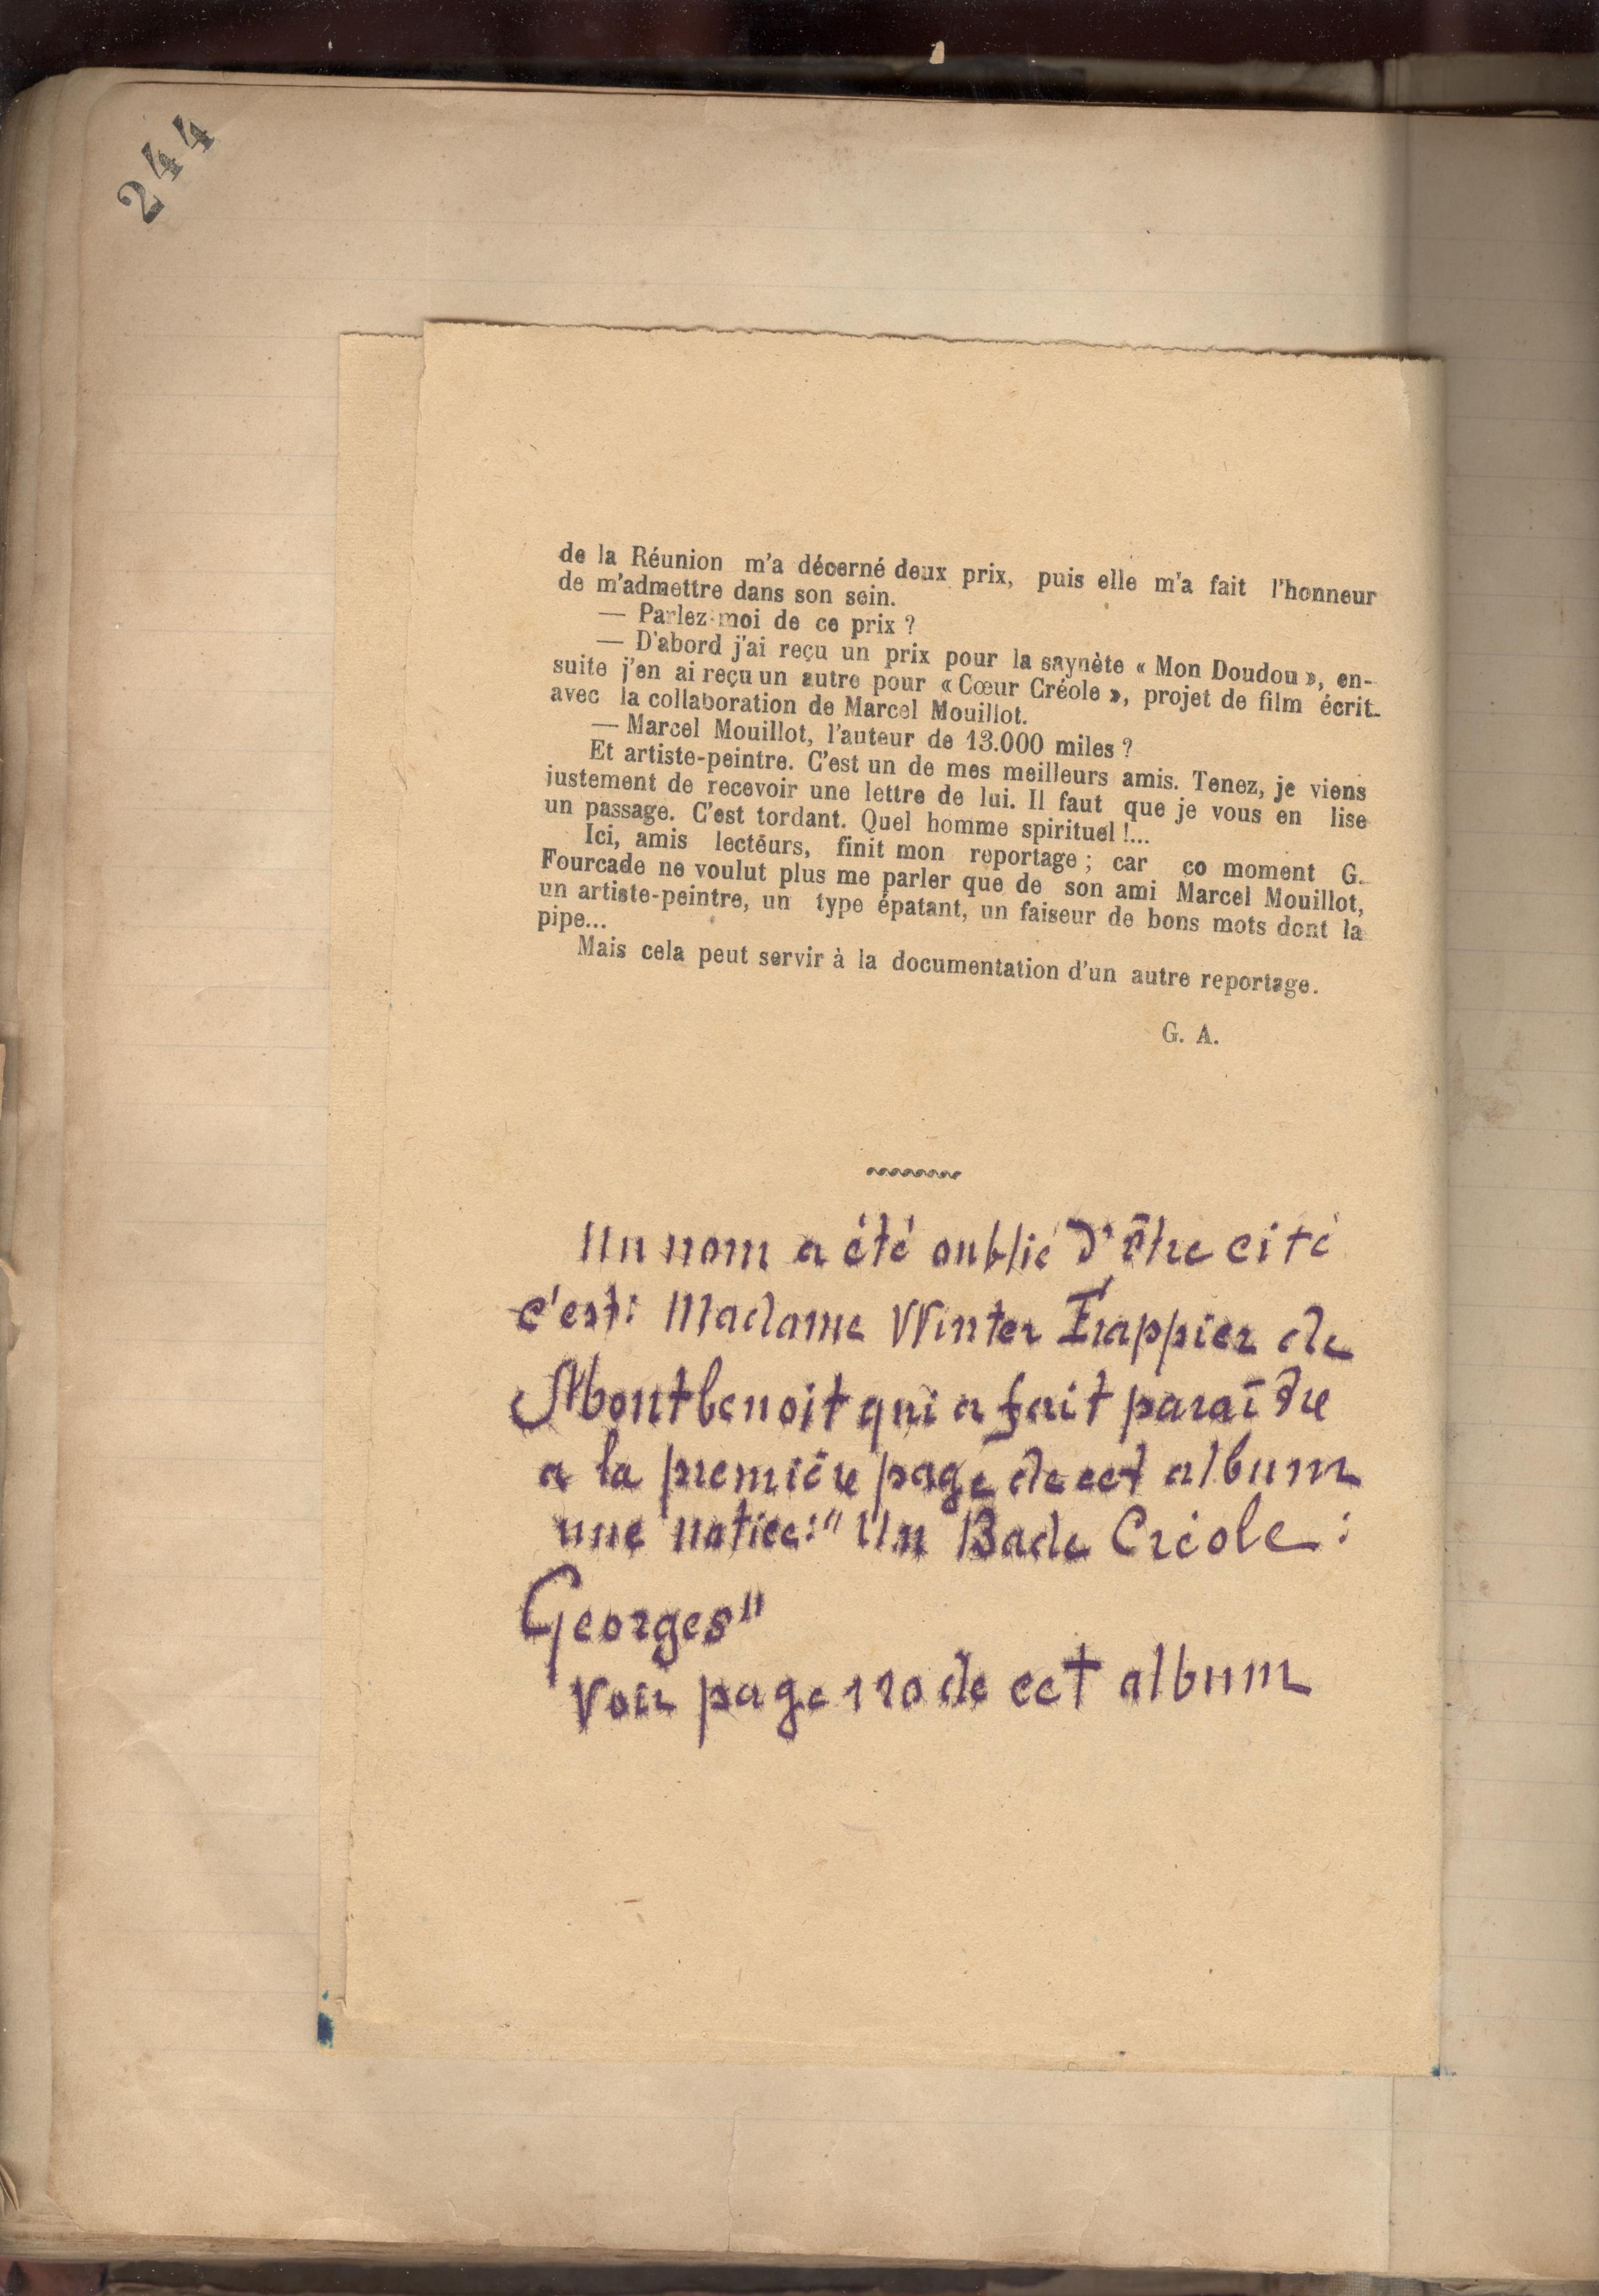 244
de la Réunion m'a décerné deux prix, puis elle m'a fait l'honneur
de m'admettre dans son sein.
— Parlez-moi de ce prix ?
— D'abord j'ai reçu un prix pour la saynète « Mon Doudou », en-
suite j'en ai reçu un autre pour « Cœur Créole », projet de film écrit
avec la collaboration de Marcel Mouillot.
— Marcel Mouillot, l'auteur de 13.000 miles ?
Et artiste-peintre. C'est un de mes meilleurs amis. Tenez, je viens
justement de recevoir une lettre de lui. Il faut que je vous en lise
un passage. C'est tordant. Quel homme spirituel !...
Ici, amis lecteurs, finit mon reportage ; car ce moment G.
Fourcade ne voulut plus me parler que de son ami Marcel Mouillot,
un artiste-peintre, un type épatant, un faiseur de bons mots dont la
pipe...
Mais cela peut servir à la documentation d'un autre reportage.
G. A.
Un nom a été oublié d'être cité
c'est: Madame Winter Frappier de
Montbenoit qui a fait paraître
a la première page de cet album
une notice:" Un Barde Créole :
Georges"
Voir page 120 de cet album